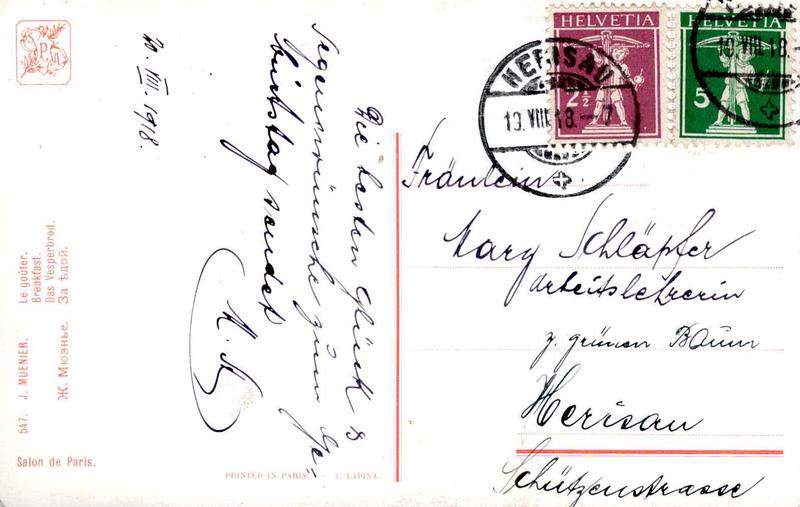 HELVETIA
HELVETIA
2½
5
HERISAU
19.VIII.18.–7
Fräulein
Mary Schläpfer
Arbeitslehrerin
z. grünen Baum
Herisau
Schützenstrasse
20. VIII. 1918.
Die besten Glück &
Segenswünsche zum Ge-
burtstag sendet
547. J. MUENIER.
Le goûter.
Breakfast.
Das Vesperbrod.
Ж. Мюэнье. За ѣдой.
Salon de Paris.
PRINTED IN PARIS. I. LAPINA.